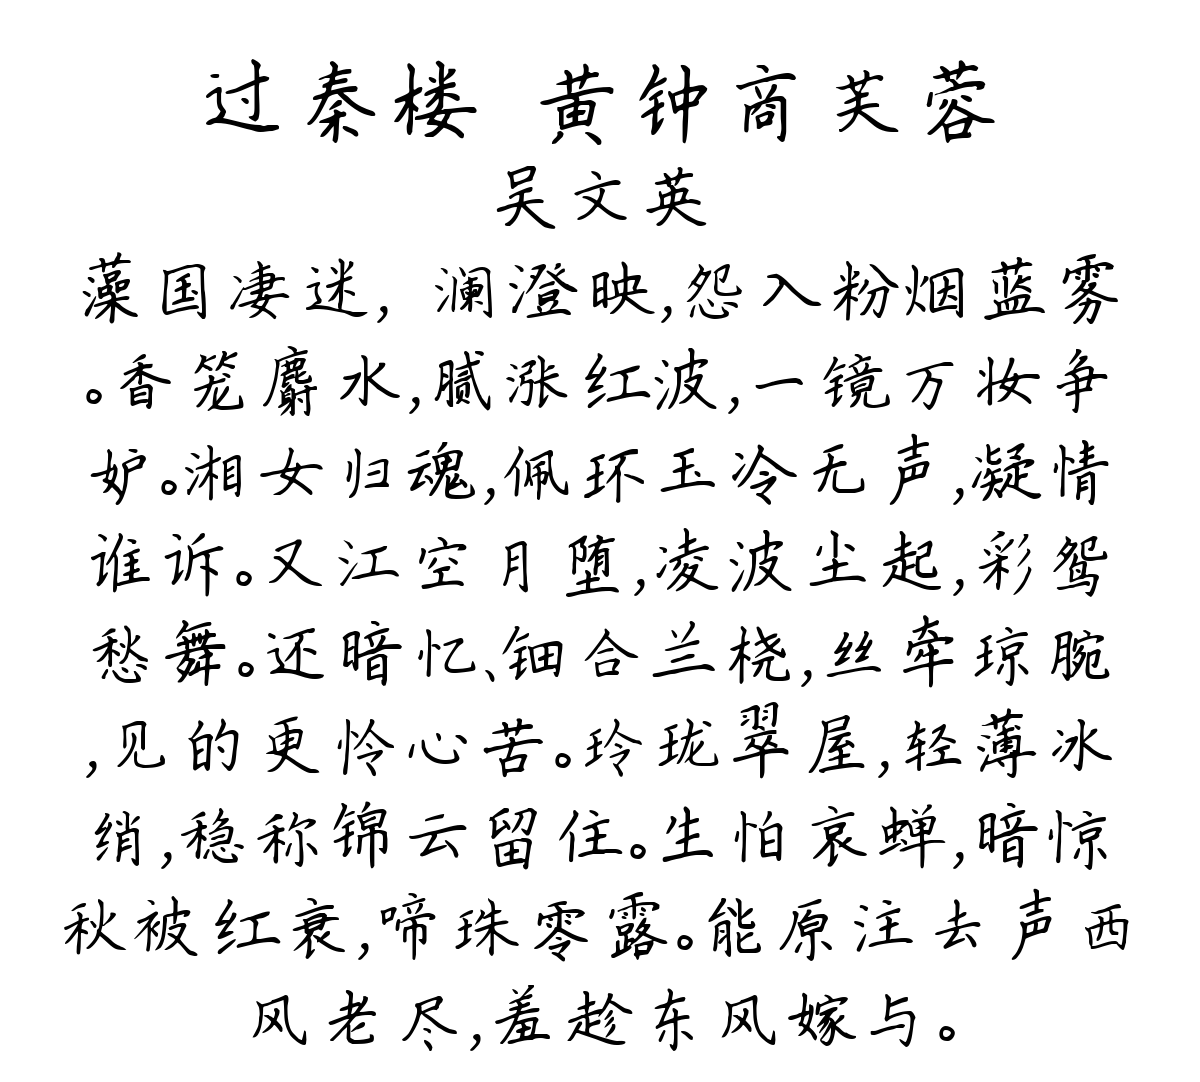 过秦楼 黄钟商芙蓉
吴文英
藻国凄迷,澜澄映,怨入粉烟蓝雾
。香笼麝水,腻涨红波,一镜万妆争
妒。湘女归魂,佩环玉冷无声,凝情
谁诉。又江空月堕,凌波尘起,彩鸳
愁舞。还暗忆、钿合兰桡,丝牵琼腕
,见的更怜心苦。玲珑翠屋,轻薄冰
绡,稳称锦云留住。生怕哀蝉,暗惊
秋被红衰,啼珠零露。能原注去声西
风老尽,羞趁东风嫁与。